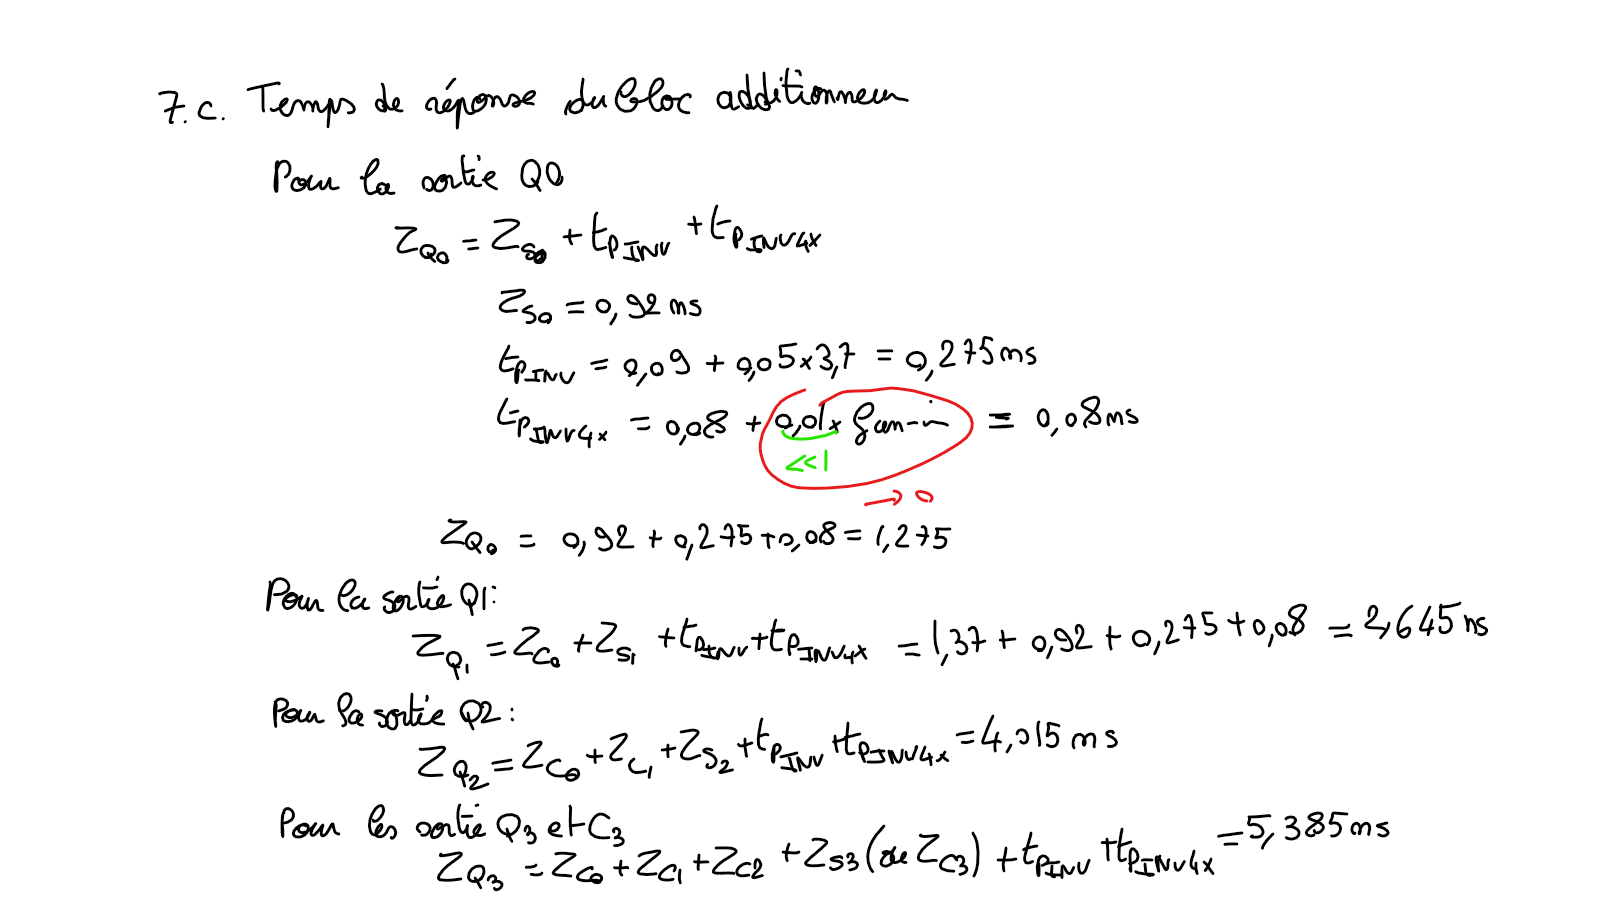 7.c. Temps de réponse du bloc additionneur
Pour la sortie Q0
Z_Q0 = Z_S0 + t_PINV + t_PINV4x
Z_S0 = 0,92 ns
t_PINV = 0,09 + 0,05x3,7 = 0,275 ns
t_PINV4x = 0,08 + 0,01x fan-in = 0,08 ns
<<1
→ 0
Z_Q0 = 0,92 + 0,275 + 0,08 = 1,275
Pour la sortie Q1:
Z_Q1 = Z_C0 + Z_S1 + t_PINV + t_PINV4x = 1,37 + 0,92 + 0,275 + 0,08 = 2,645 ns
Pour la sortie Q2:
Z_Q2 = Z_C0 + Z_C1 + Z_S2 + t_PINV + t_PINV4x = 4,015 ns
Pour les sortie Q3 et C3
Z_Q3 = Z_C0 + Z_C1 + Z_C2 + Z_S3 (ou Z_C3) + t_PINV + t_PINV4x = 5,385 ns